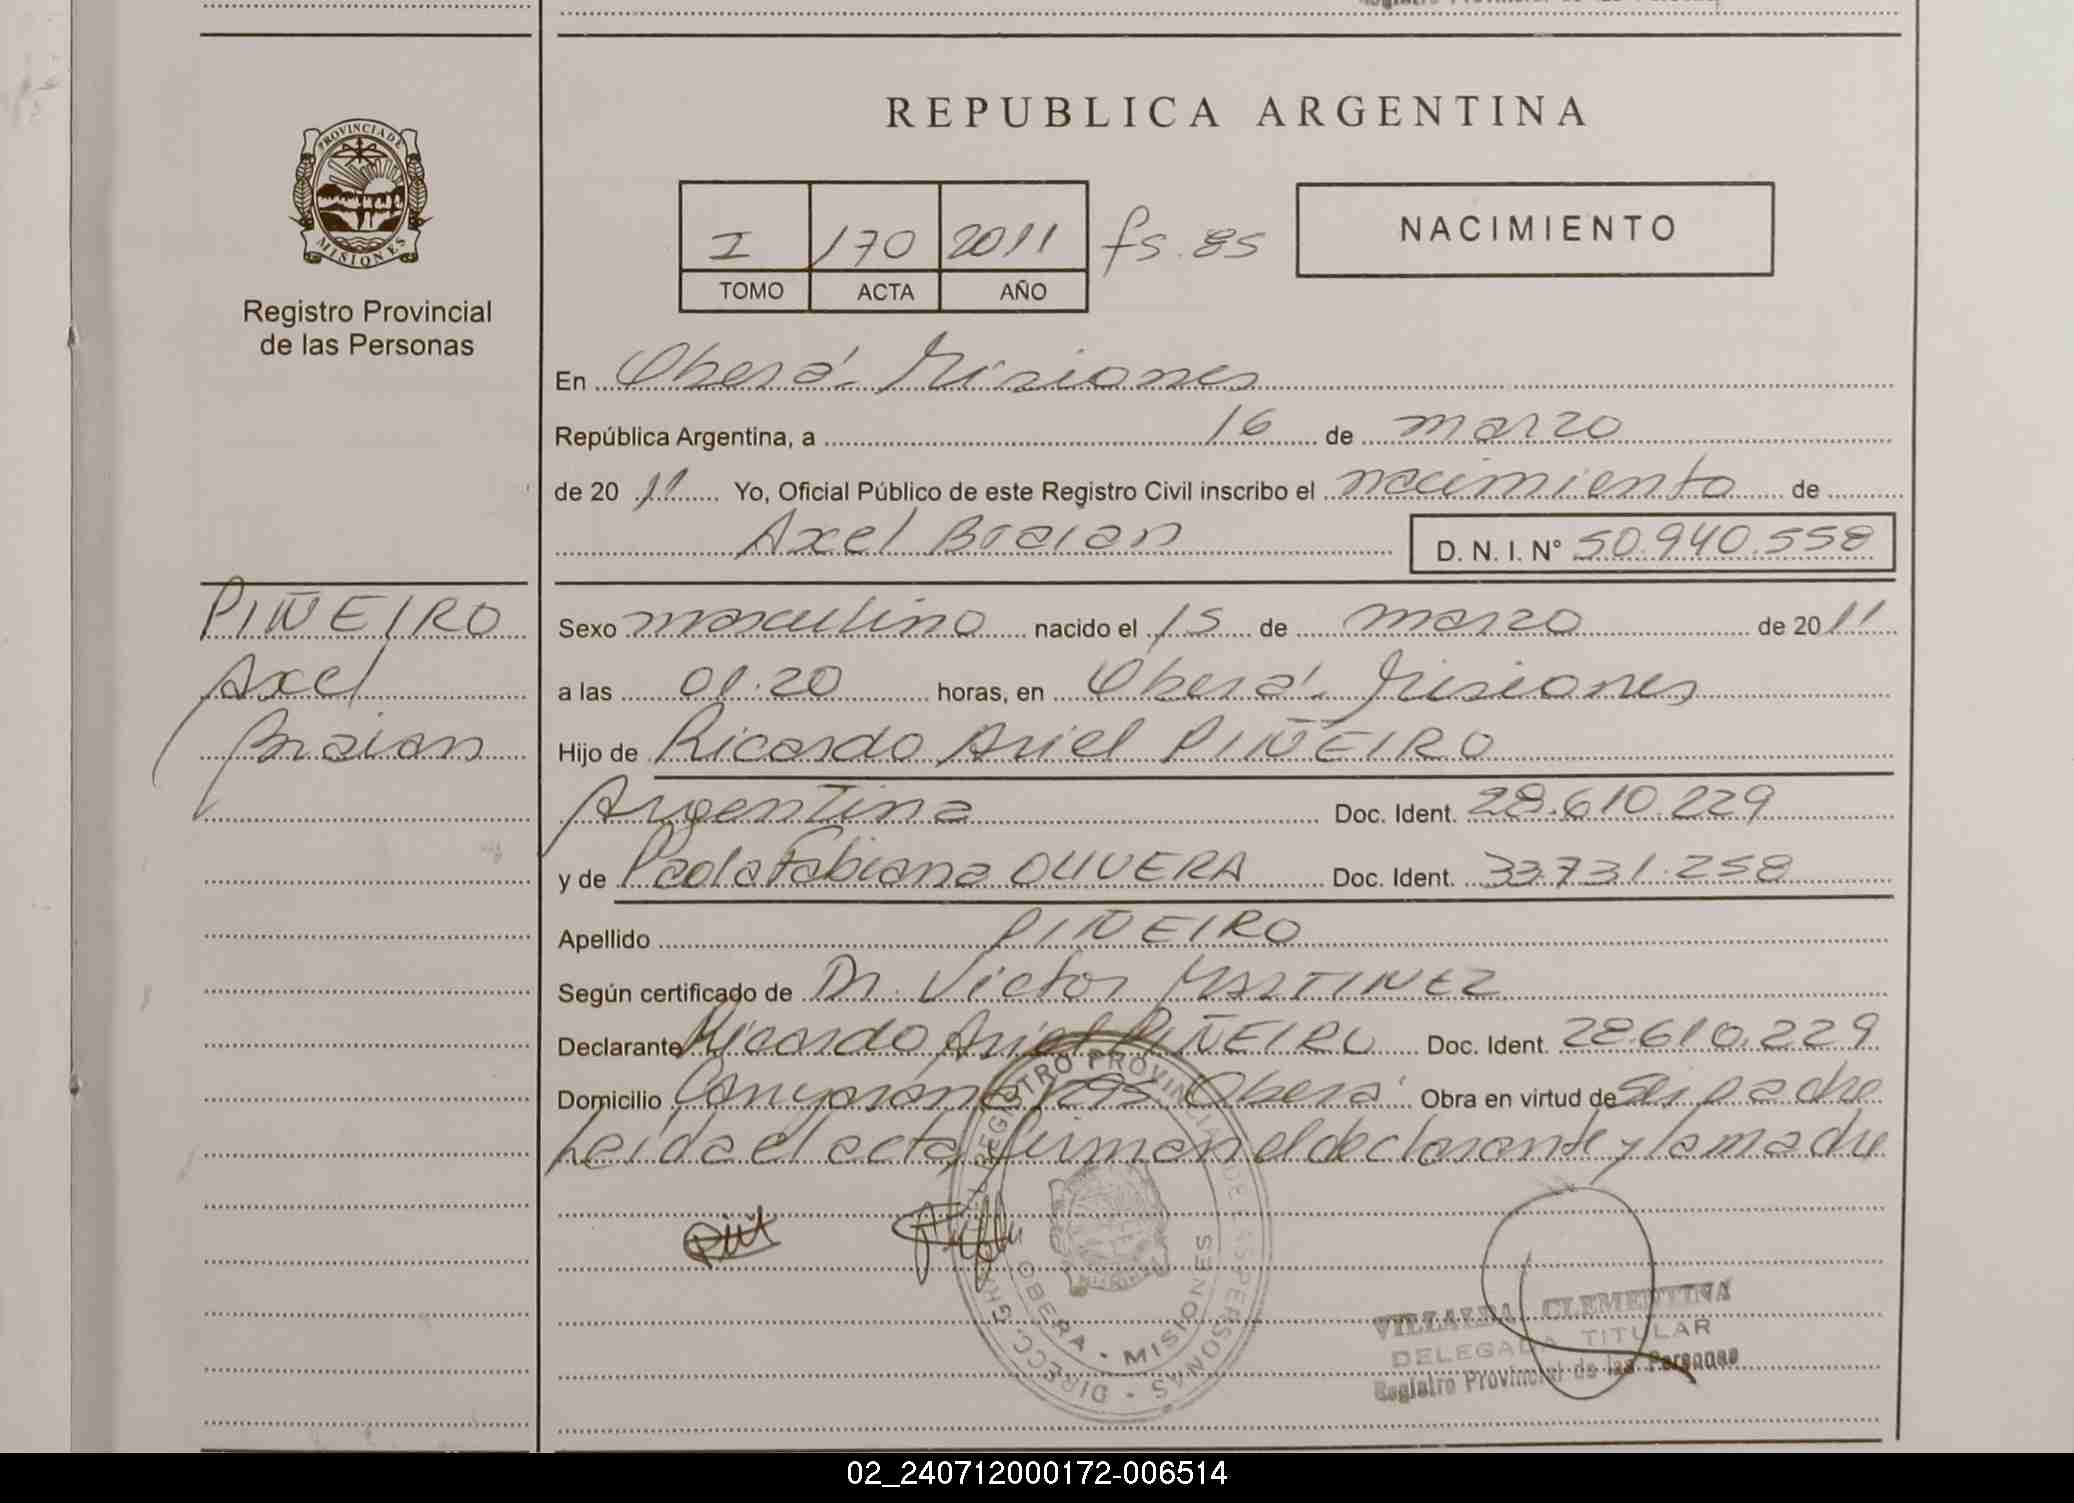 REPUBLICA ARGENTINA
PROVINCIA DE
MISIONES
Registro Provincial
de las Personas
I 170 2011 fs. 85
TOMO ACTA AÑO
NACIMIENTO
En Oberá Misiones
República Argentina, a 16 de marzo
de 20 11 Yo, Oficial Público de este Registro Civil inscribo el nacimiento de
Axel Braian D. N. I. N° 50.940.558
PIÑEIRO
Axel
Braian
Sexo masculino nacido el 15 de marzo de 20 11
a las 01.20 horas, en Oberá Misiones
Hijo de Ricardo Ariel PIÑEIRO
Argentina Doc. Ident. 28.610.229
y de Paola Fabiana OLIVERA Doc. Ident. 33.731.258
Apellido PIÑEIRO
Según certificado de Dr. Victor MARTINEZ
Declarante Ricardo Ariel PIÑEIRO Doc. Ident. 28.610.229
Domicilio 1295 Oberá Obra en virtud de Ser padre
Leida el acta, firman el declarante y la madre
REGISTRO PROVINCIAL DE LAS PERSONAS
OBERA - MISIONES
VILLALBA CLEMENTINA
DELEGADA TITULAR
Registro Provincial de las Personas
02_240712000172-006514